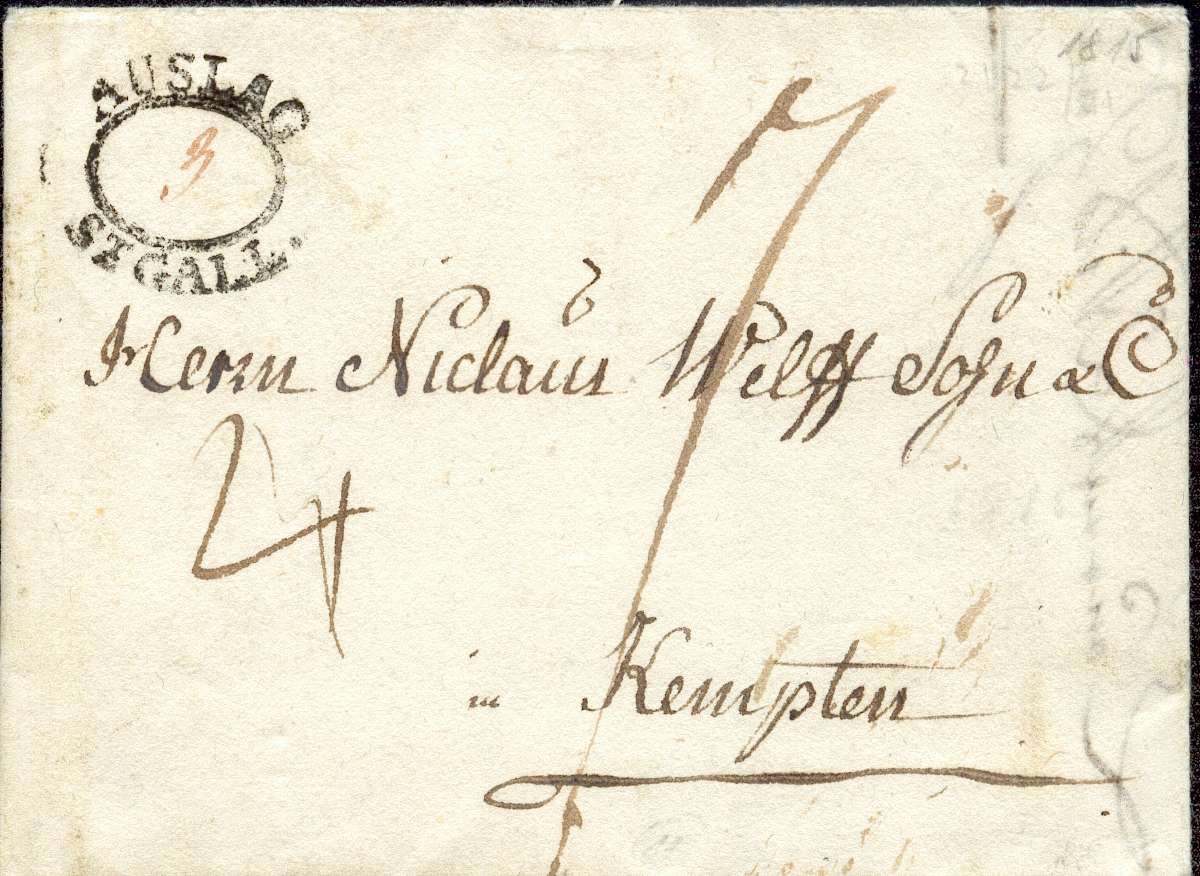 AUSLAG
3
ST GALL.
1815
7
Herrn Niclaus Wolff Sohn & C
4
in Kempten